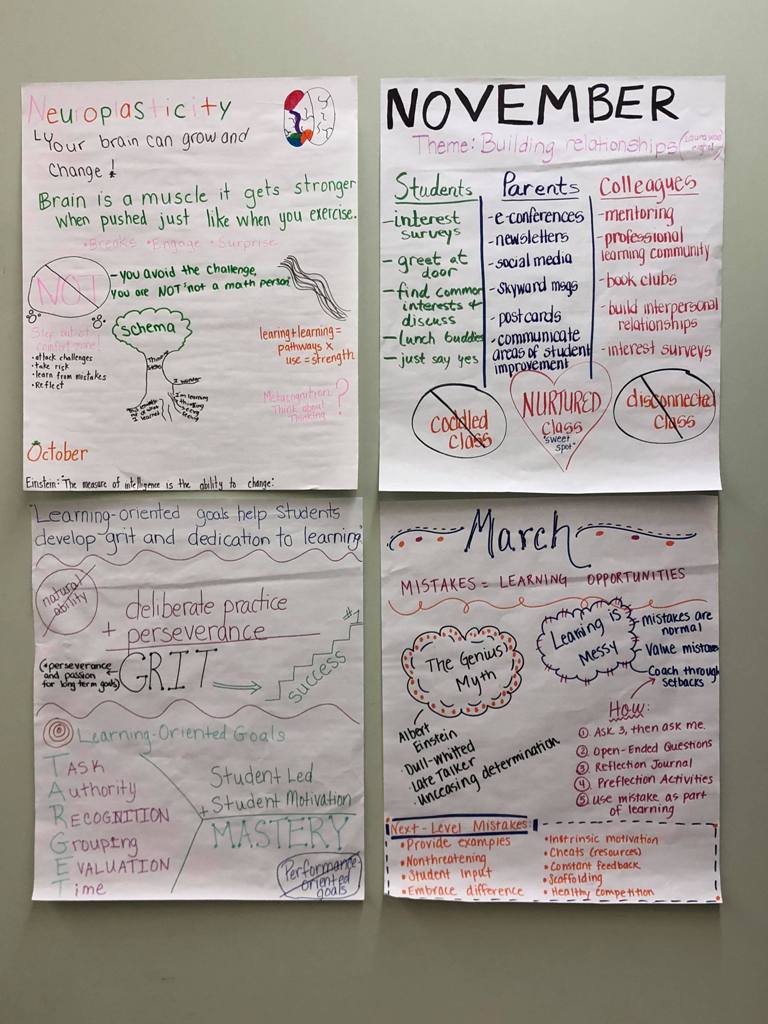 Neuroplasticity
Your brain can grow and
change!
Brain is a muscle it gets stronger
when pushed just like when you exercise.
•Breaks •Engage •Surprise
NOT
-you avoid the challenge,
you are NOT "not a math person"
Step out of
comfort zone!
•attack challenges
•take risk
•learn from mistakes
•Reflect
Schema
I wonder
I'm learning
learing+learning=
pathways x
use=strength
Metacognition
Think about
Thinking
?
October
Einstein: "The measure of intelligence is the ability to change."
NOVEMBER
Theme: Building relationships
Students
-interest
surveys
-great at
door
-find common
interests &
discuss
-Lunch buddies
-just say yes
Parents
-e-conferences
-newsletters
-social media
-skyward msgs
-postcards
-communicate
areas of student
improvement
Colleagues
-mentoring
-professional
learning community
-book clubs
-build interpersonal
relationships
-interest surveys
coddled
class
NURTURED
class
"sweet
spot"
disconnected
class
"Learning-oriented goals help Students
develop grit and dedication to learning"
natural
ability
deliberate practice
+ perseverance
GRIT
(*perseverance
and passion
for long term goals)
success
#1
Learning-Oriented Goals
TASK
Authority
RECOGNITION
Grouping
EVALUATION
Time
Student Led
+ Student Motivation
MASTERY
Performance
oriented
goals
March
MISTAKES = LEARNING OPPORTUNITIES
The Genius
Myth
Albert
Einstein
•Dull-whitted
•Late Talker
•Unceasing determination
Learning is
Messy
mistakes are
normal
Value mistakes
Coach through
setbacks
How:
① Ask 3, then ask me.
② Open-Ended Questions
③ Reflection Journal
④ Preflection Activities
⑤ use mistake as part
of learning
Next-Level Mistakes:
•Provide examples
•Nonthreatening
•Student Input
•Embrace difference
•Instrinsic motivation
•Cheats (resources)
•Constant feedback
•Scaffolding
•Healthy competition